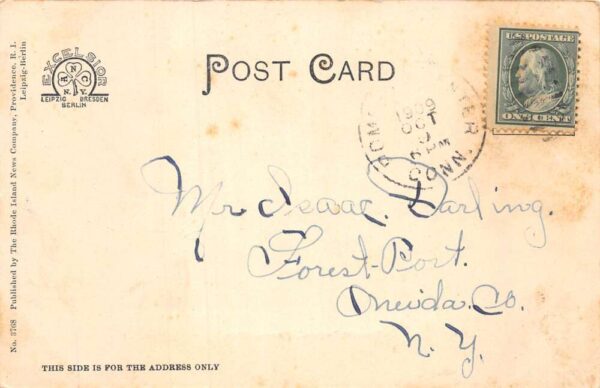 EXCELSIOR
A N C
N.Y.
LEIPZIG DRESDEN
BERLIN
POST CARD
U.S. POSTAGE
ONE CENT
1909
OCT
PM
CONN
Mr Isaac. Darling.
Forest-Port.
Oneida. Co.
N. Y.
THIS SIDE IS FOR THE ADDRESS ONLY
No. 3768 Published by The Rhode Island News Company, Providence, R. I.
Leipzig-Berlin